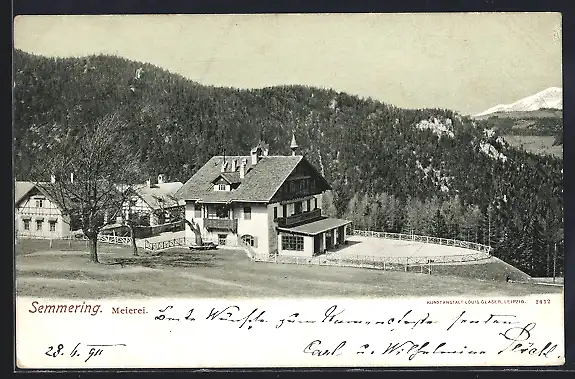 KUNSTANSTALT LOUIS GLASER, LEIPZIG. 2432
Semmering. Meierei. Beste Wünsche zum Namensfeste senden
28.4.911 Carl u. Wilhelmine